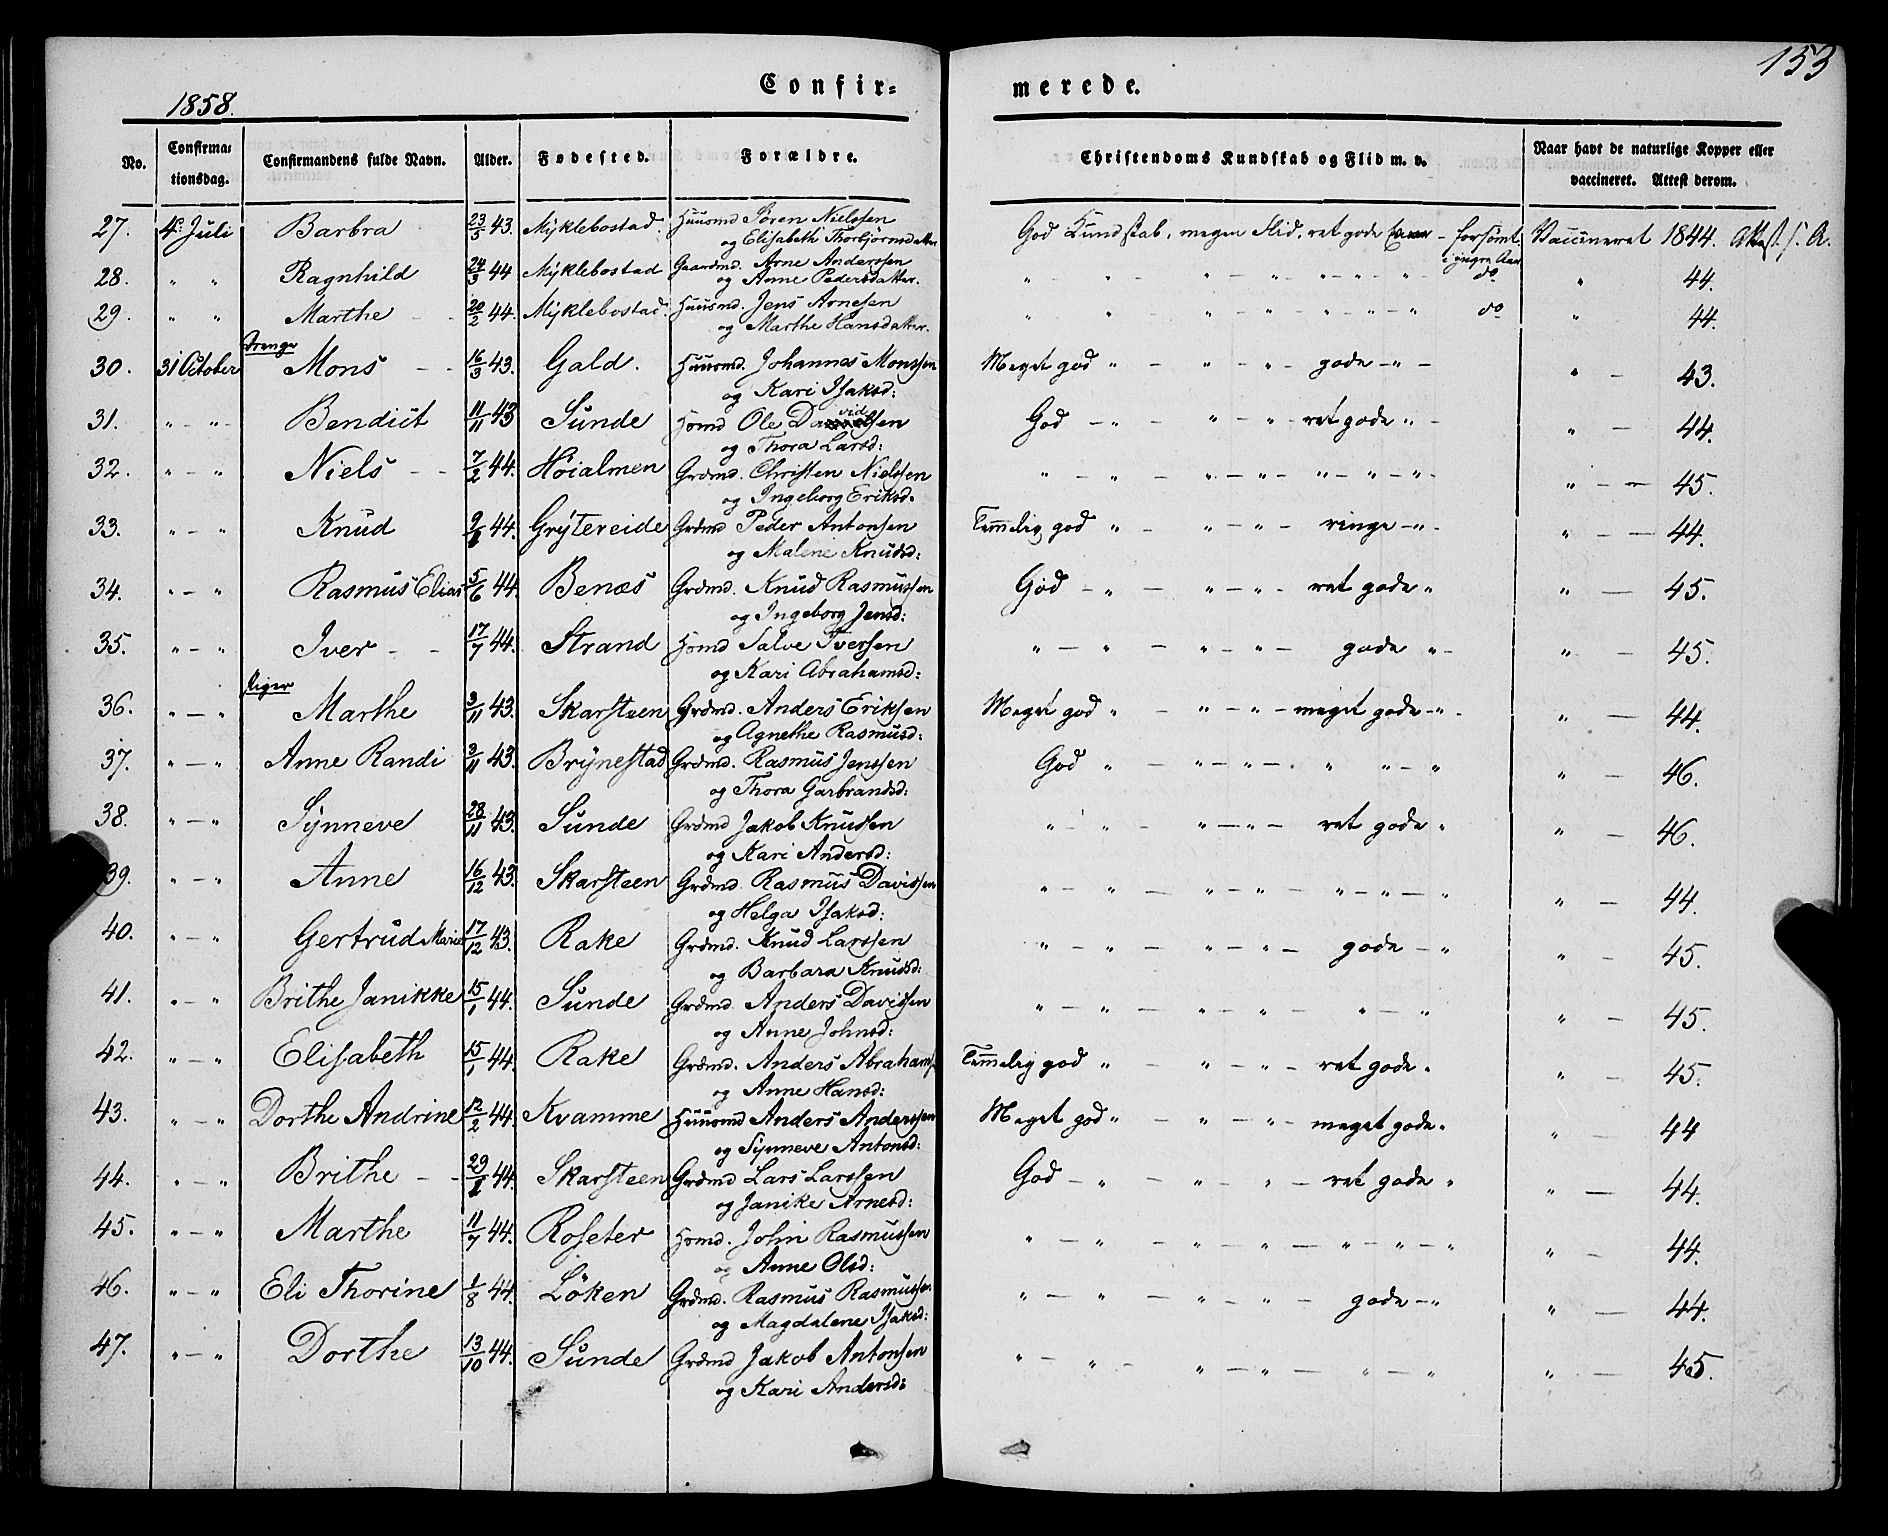 153
1858.
Confir- merede.
No. Confirma- tionsdag. Confirmandens fulde Navn. Alder. Fødested. Forældre. Christendoms Kundskab og Flid m. v. Naar havt de naturlige Kopper eller vaccineret. Attest derom.
27. 4de Juli Barbra 23/5 43. Myklebostad. Huusmd Sören Nielssen God Kundskab, megen Flid, ret gode - forsömt Vaccineret 1844.
og Elisabeth Thorbjörnsdatter i yngre Aar
28. " " Ragnhild 24/3 44 Myklebostad Gaardmd. Arne Anderssen " " - " - " - " - " do " 44.
og Anne Pedersdatter.
29. " " Marthe - - 20/2 44. Myklebostad. Huusmd. Jens Arnesen " " - " - " - " - " do " 44.
og Marthe Hansdatter.
Drenge
30. 31 October Mons - - 16/3 43. Gald. Huusmd. Johannes Monssen Meget god " - " - " - gode - " - " - 43.
og Kari Isaksd:
31. " - " - Bendict 11/11 43 Sunde Hsmd Ole Davidsen God - " - " - " - ret gode " - " - 44.
og Thora Larsd:
32. " - " Niels - - 7/2 44. Höialmen Grdmd. Christen Nielssen " - " - " - " - " - " - " - " - 45.
og Ingeborg Eriksd.
33. " - " Knud 9/1 44. Grytereide Grdmd Peder Antonsen Temmelig god " - " - " - ringe - " - " - 44.
og Malene Knudsd:
34. " - " Rasmus Elias 5/6 44. Benæs Grdmd. Knud Rasmussen God - " - " - " - ret gode " " - 45.
og Ingeborg Jensd:
35. " - " Iver - - 17/7 44. Strand Hsmd Salve Iversen " - " - " - " - gode " - " - 45.
og Kari Abrahamsd:
Piger
36. " - " Marthe 3/11 43. Skarsteen Grdmd. Anders Eriksen Meget god " - " - " - meget gode - " - " - 44.
og Agnethe Rasmusd:
37. " - " Anne Randi 3/11 43. Brynestad Grdmd. Rasmus Jenssen God " - " - " - " " - " " - 46.
og Thora Garbrandsd:
38. " - " Synneve 28/11 43. Sunde Grdmd Jakob Knudsen " - " - " - " - ret gode " " - 46.
og Kari Andersd:
39. " - " Anne 16/12 43. Skarsteen Grdmd. Rasmus Davidsen " - " - " - " - " - " - " " - 44.
og Helga Isaksd:
40. " - " Gertrud Marie 17/12 43. Rake Grdmd. Knud Larssen " - " - " - " - gode - " " - 45.
og Barbara Knudsd:
41. " - " Brithe Janikke 15/1 44. Sunde Grdmd. Anders Davidsen " - " - " - " - " - " " - 45.
og Anne Johnsd:
42. " - " Elisabeth 15/1 44. Rake Grdmd. Anders Abrahams. Temmelig god " - " - " - ret gode " " - 45.
og Anne Hansd:
43. " - " Dorthe Andrine 12/2 44. Kvamme Huusmd Anders Anderssen Meget god " - " - " - meget gode " " - 44
og Synneve Antonsd:
44. " - " Brithe - - 29/1 44. Skarsteen Grdmd Lars Larssen God - " - " - " - ret gode " " - 44.
og Janike Arnesd:
45. " - " Marthe 11/7 44. Roseter Hsmd. John Rasmussen " - " - " - " - " - " - " " - 44.
og Anne Olsd:
46. " - " Eli Thorine 1/8 44. Löken Grdmd. Rasmus Rasmussen " - " - " - " - gode - " " - 44.
og Magdalene Isaksd:
47. " - " Dorthe 13/10 44. Sunde Grdmd Jakob Antonsen " - " - " - " - " - " " - 45.
og Kari Andersd: